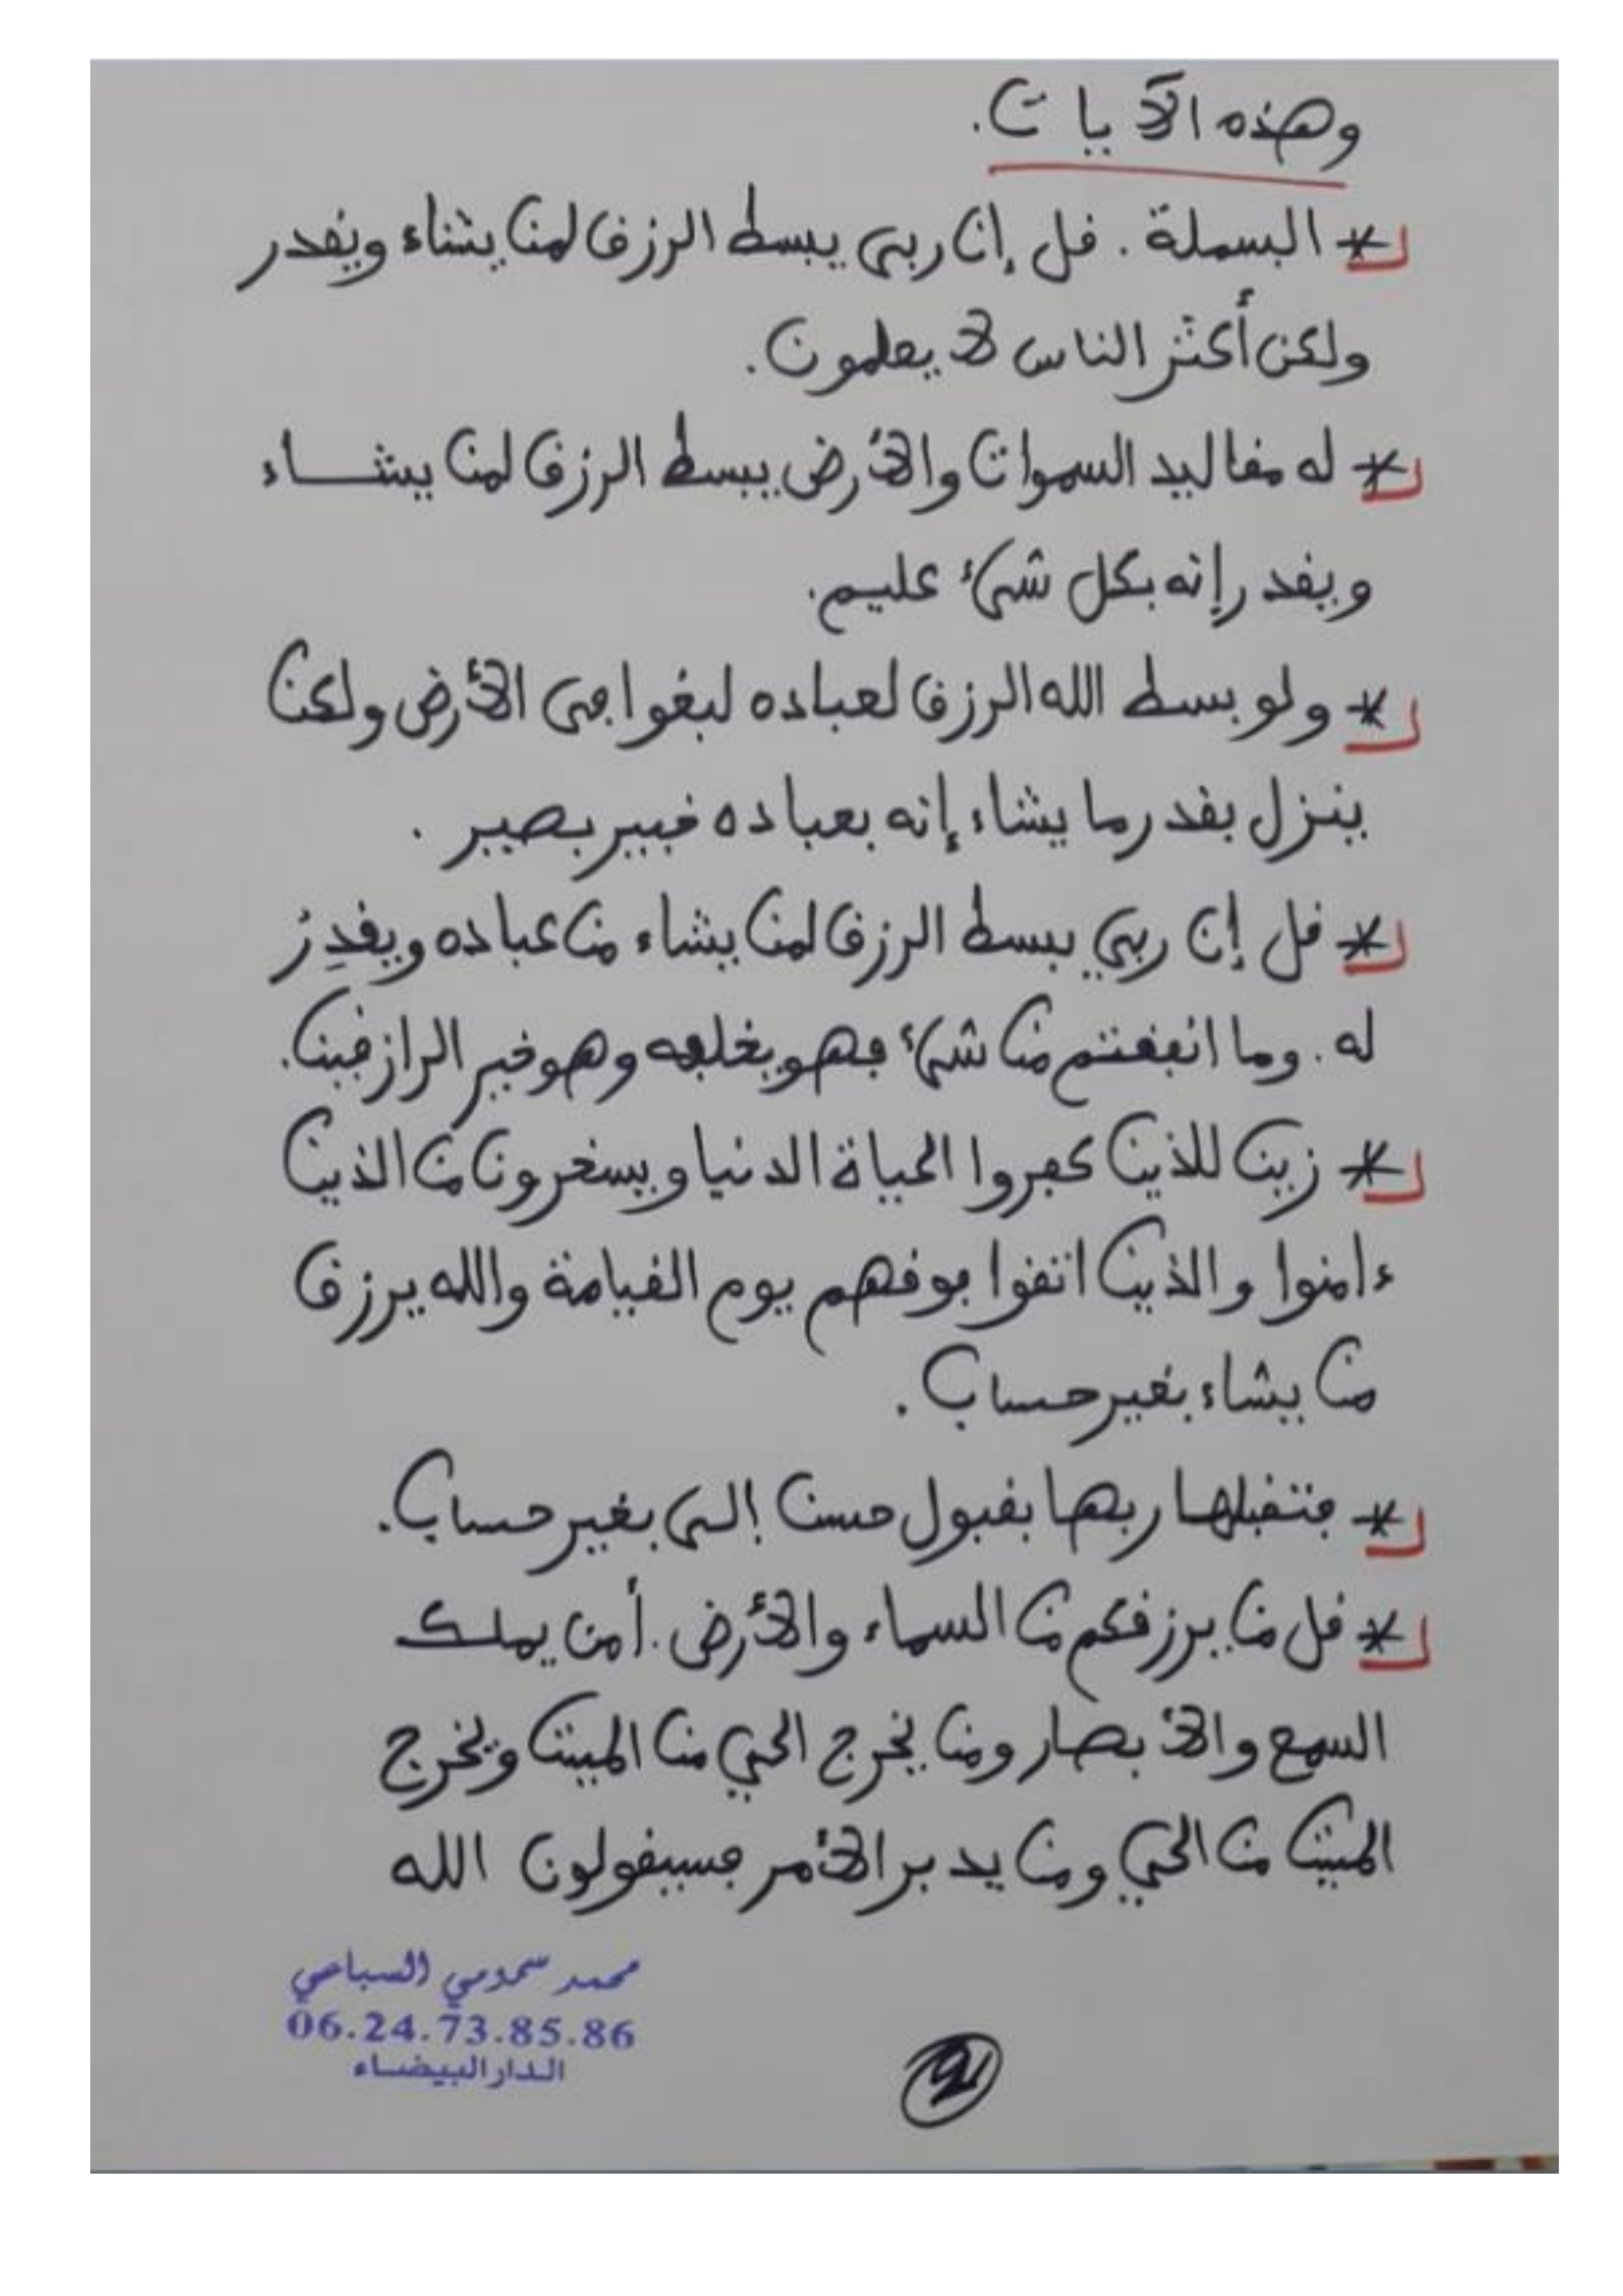 وهذه الآيات.
* البسملة. قل إن ربى يبسط الرزق لمن يشاء ويقدر
ولكن أكثر الناس لا يعلمون.
* له مقاليد السموات والأرض يبسط الرزق لمن يشاء
ويقدر إنه بكل شئ عليم.
* ولو بسط الله الرزق لعباده لبغوا فى الأرض ولكن
ينزل بقدر ما يشاء إنه بعباده خبير بصير.
* قل إن ربي يبسط الرزق لمن يشاء من عباده ويقدِرُ
له. وما انفقتم من شئ فهو يخلفه وهو خير الرازقين.
* زين للذين كفروا الحياة الدنيا ويسخرون من الذين
ءامنوا والذين اتقوا فوقهم يوم القيامة والله يرزق
من يشاء بغير حساب.
* فتقبلها ربها بقبول حسن إلى بغير حساب.
* قل من يرزقكم من السماء والأرض. أمن يملك
السمع والأبصار ومن يخرج الحي من الميت ويخرج
الميت من الحي ومن يدبر الأمر فسيقولون الله
محمد سمومي السباعي
06.24.73.85.86
الدار البيضاء